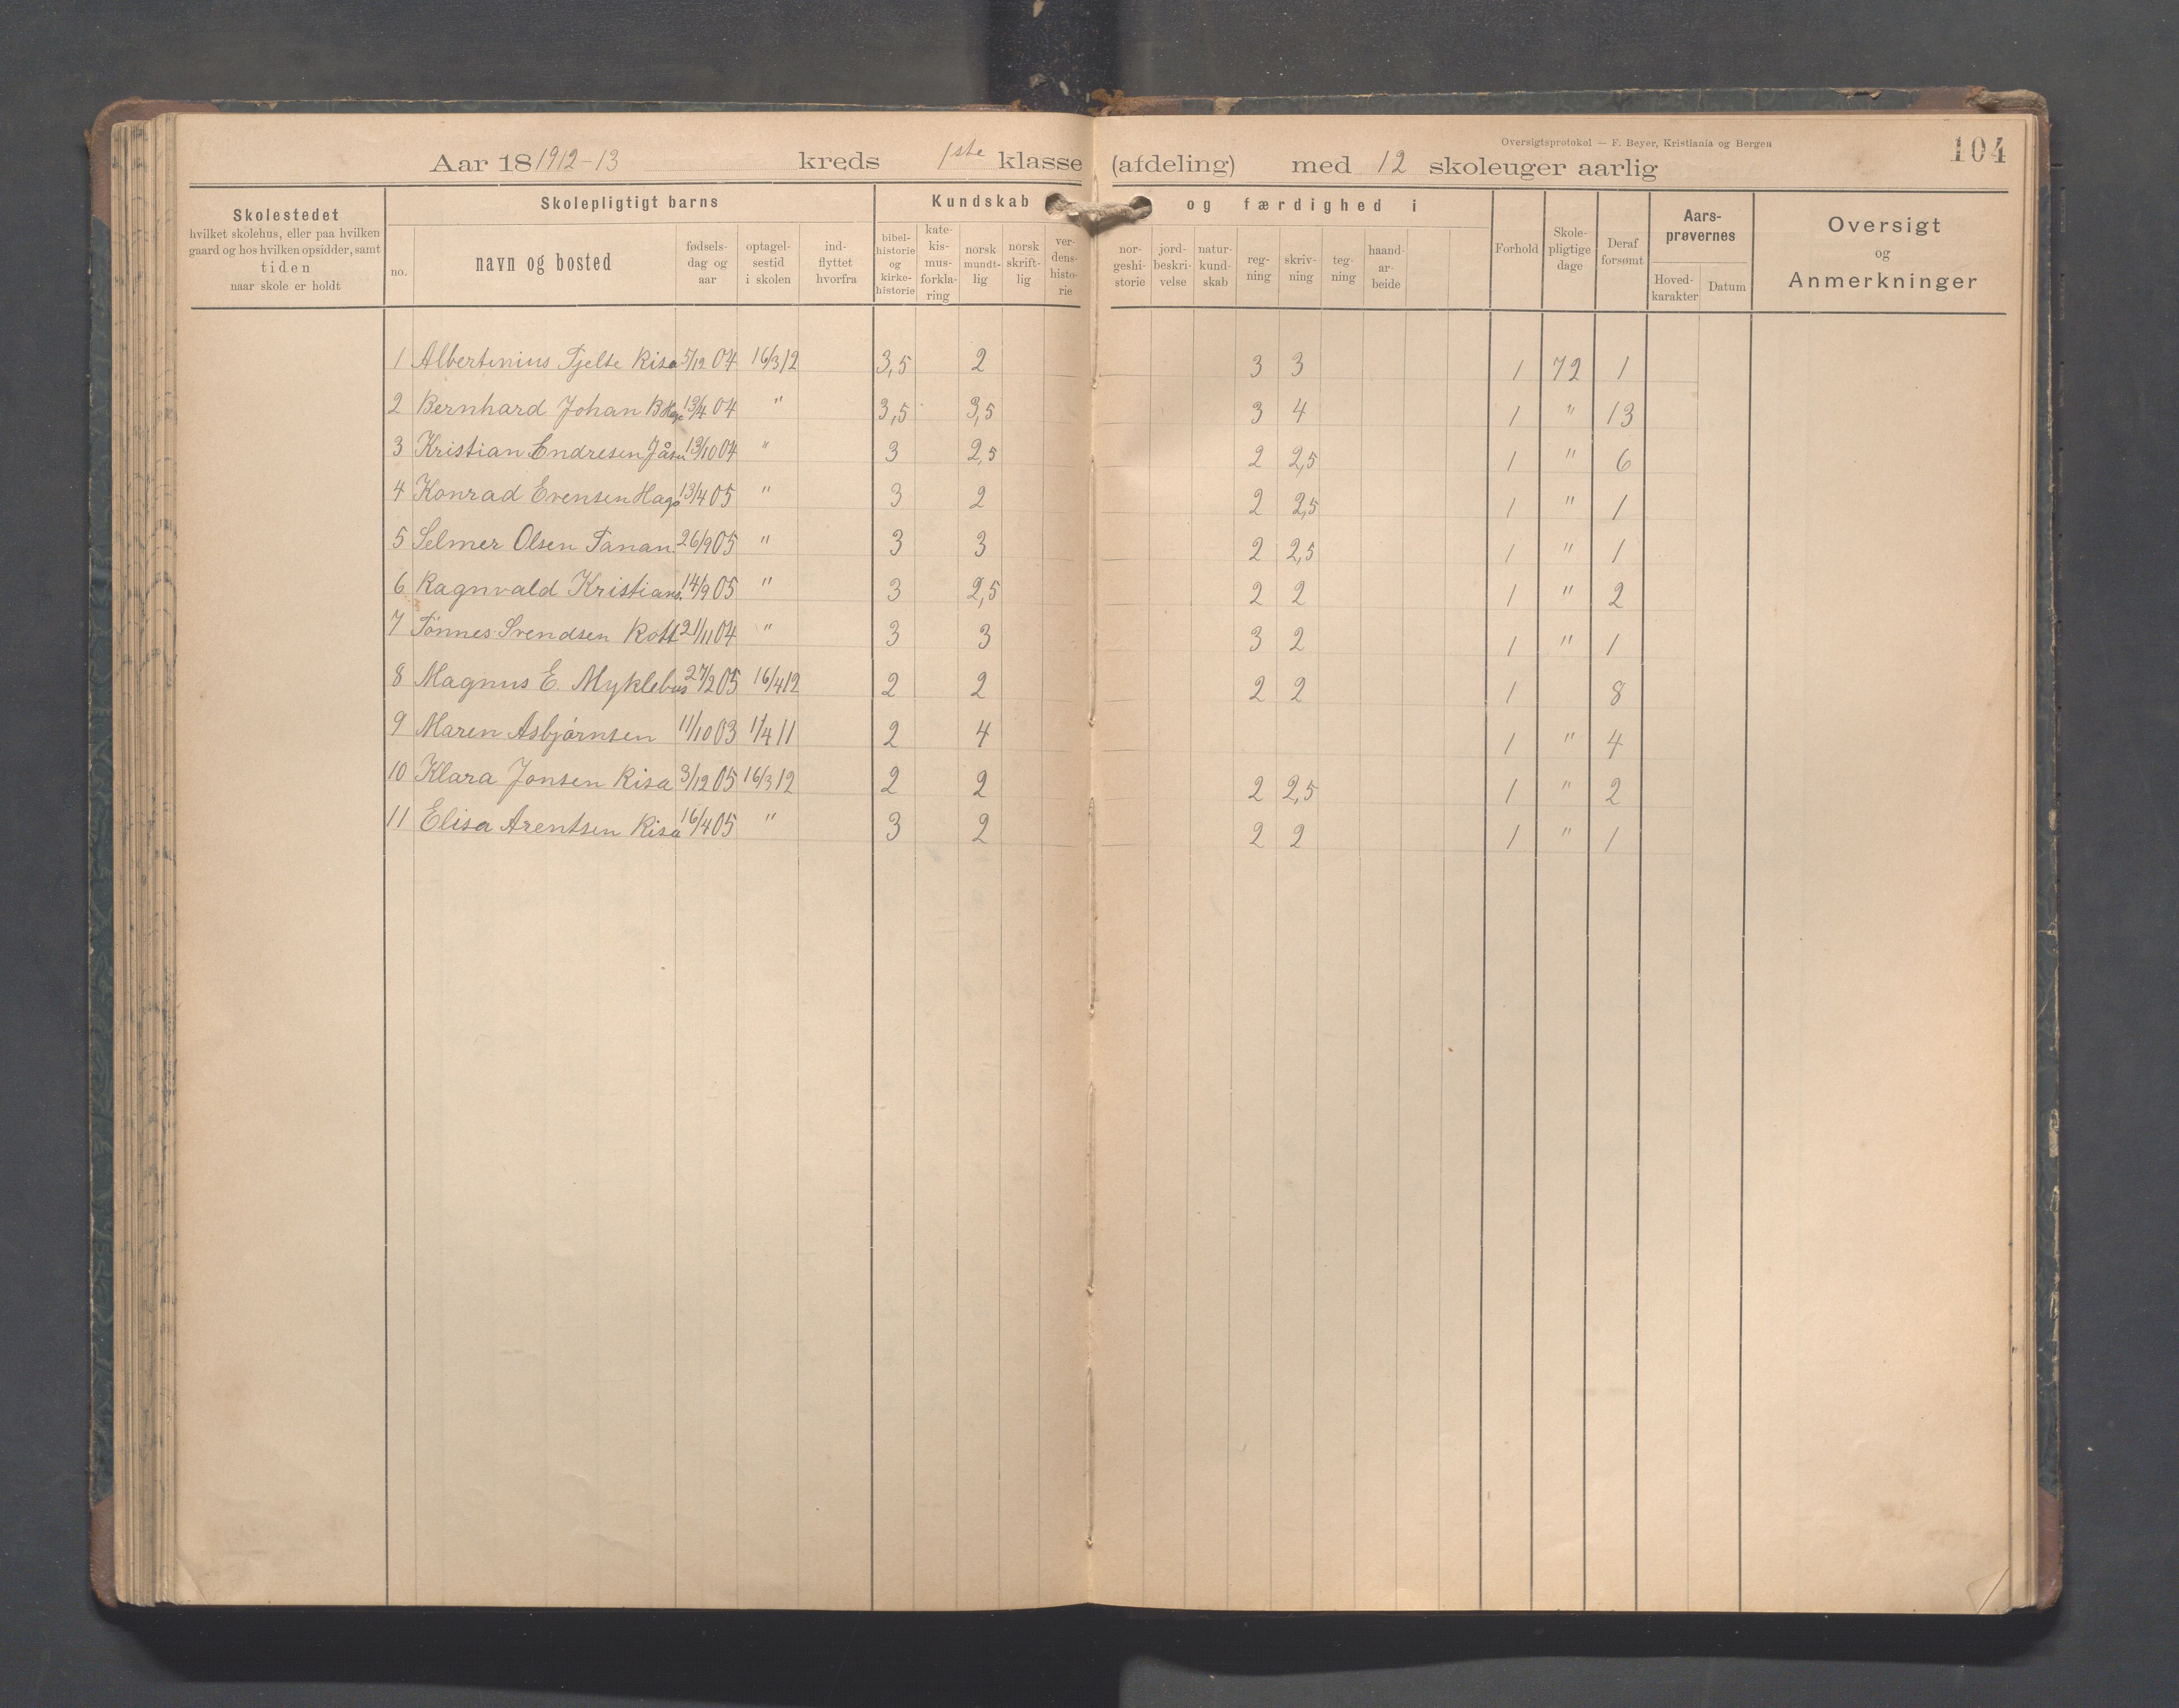 Oversigtsprotokol — F. Beyer, Kristiania og Bergen
104
Aar 181912-13 kreds 1ste klasse (afdeling) med 12 skoleuger aarlig
Skolestedet
hvilket skolehus, eller paa hvilken
gaard og hos hvilken opsidder, samt
tiden
naar skole er holdt
Skolepligtigt barns
no.
navn og bosted
fødsels-
dag og
aar
optagel-
sestid
i skolen
ind-
flyttet
hvorfra
Kundskab og færdighed i
bibel-
historie
og
kirke-
historie
kate-
kis-
mus-
forkla-
ring
norsk
mundt-
lig
norsk
skrift-
lig
ver-
dens-
histo-
rie
nor-
geshi-
storie
jord-
beskri-
velse
natur-
kund-
skab
reg-
ning
skriv-
ning
teg-
ning
haand-
ar-
beide
Forhold
Skole-
pligtige
dage
Deraf
forsømt
Aars-
prøvernes
Hoved-
karakter
Datum
Oversigt
og
Anmerkninger
1 Albertinius Tjelte Risa 5/12 04 16/3 12 3,5 2 3 3 1 72 1
2 Bernhard Johan B 13/4 04 " 3,5 3,5 3 4 1 " 13
3 Kristian Endresen 13/10 04 " 3 2,5 2 2,5 1 " 6
4 Konrad Evensen Haga 13/4 05 " 3 2 2 2,5 1 " 1
5 Selmer Olsen Tanan. 26/9 05 " 3 3 2 2,5 1 " 1
6 Ragnvald Kristians. 14/9 05 " 3 2,5 2 2 1 " 2
7 Tönnes Svendsen Rott 21/11 04 " 3 3 3 2 1 " 1
8 Magnus E. Myklebus 27/2 05 16/4 12 2 2 2 2 1 8
9 Maren Asbjørnsen 11/10 03 1/4 11 2 4 1 " 4
10 Klara Jonsen Risa 3/12 05 16/3 12 2 2 2 2,5 1 " 2
11 Elisa Arentsen Risa 16/4 05 " 3 2 2 2 1 " 1